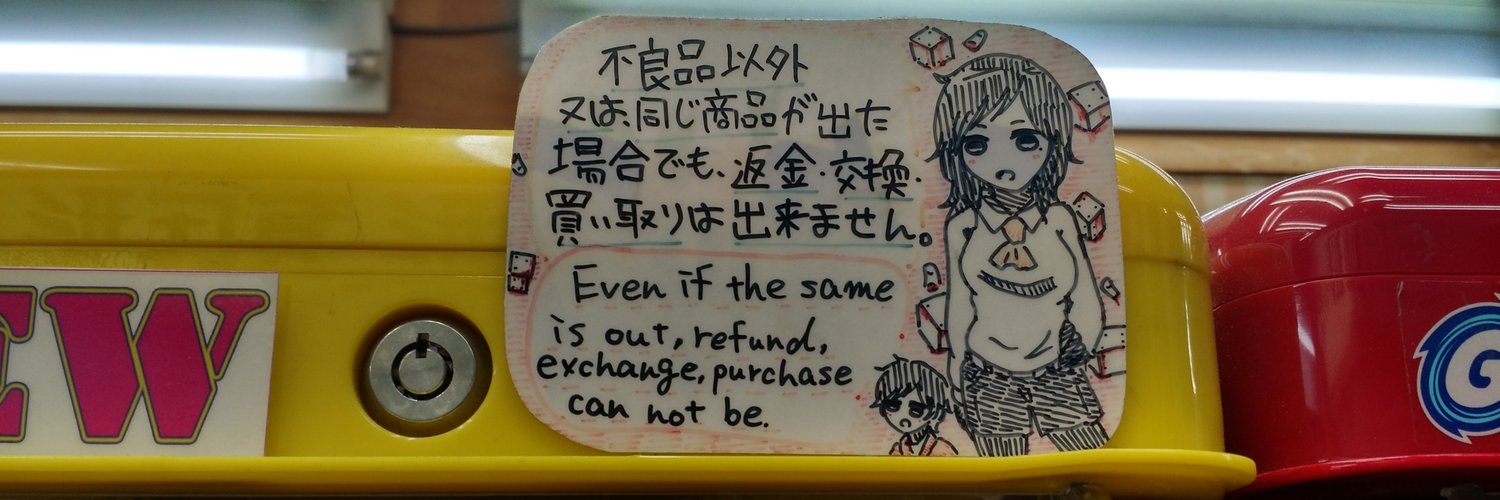 不良品以外
又は、同じ商品が出た
場合でも、返金・交換・
買い取りは出来ません。
Even if the same
is out, refund,
exchange, purchase
can not be.
EW
G